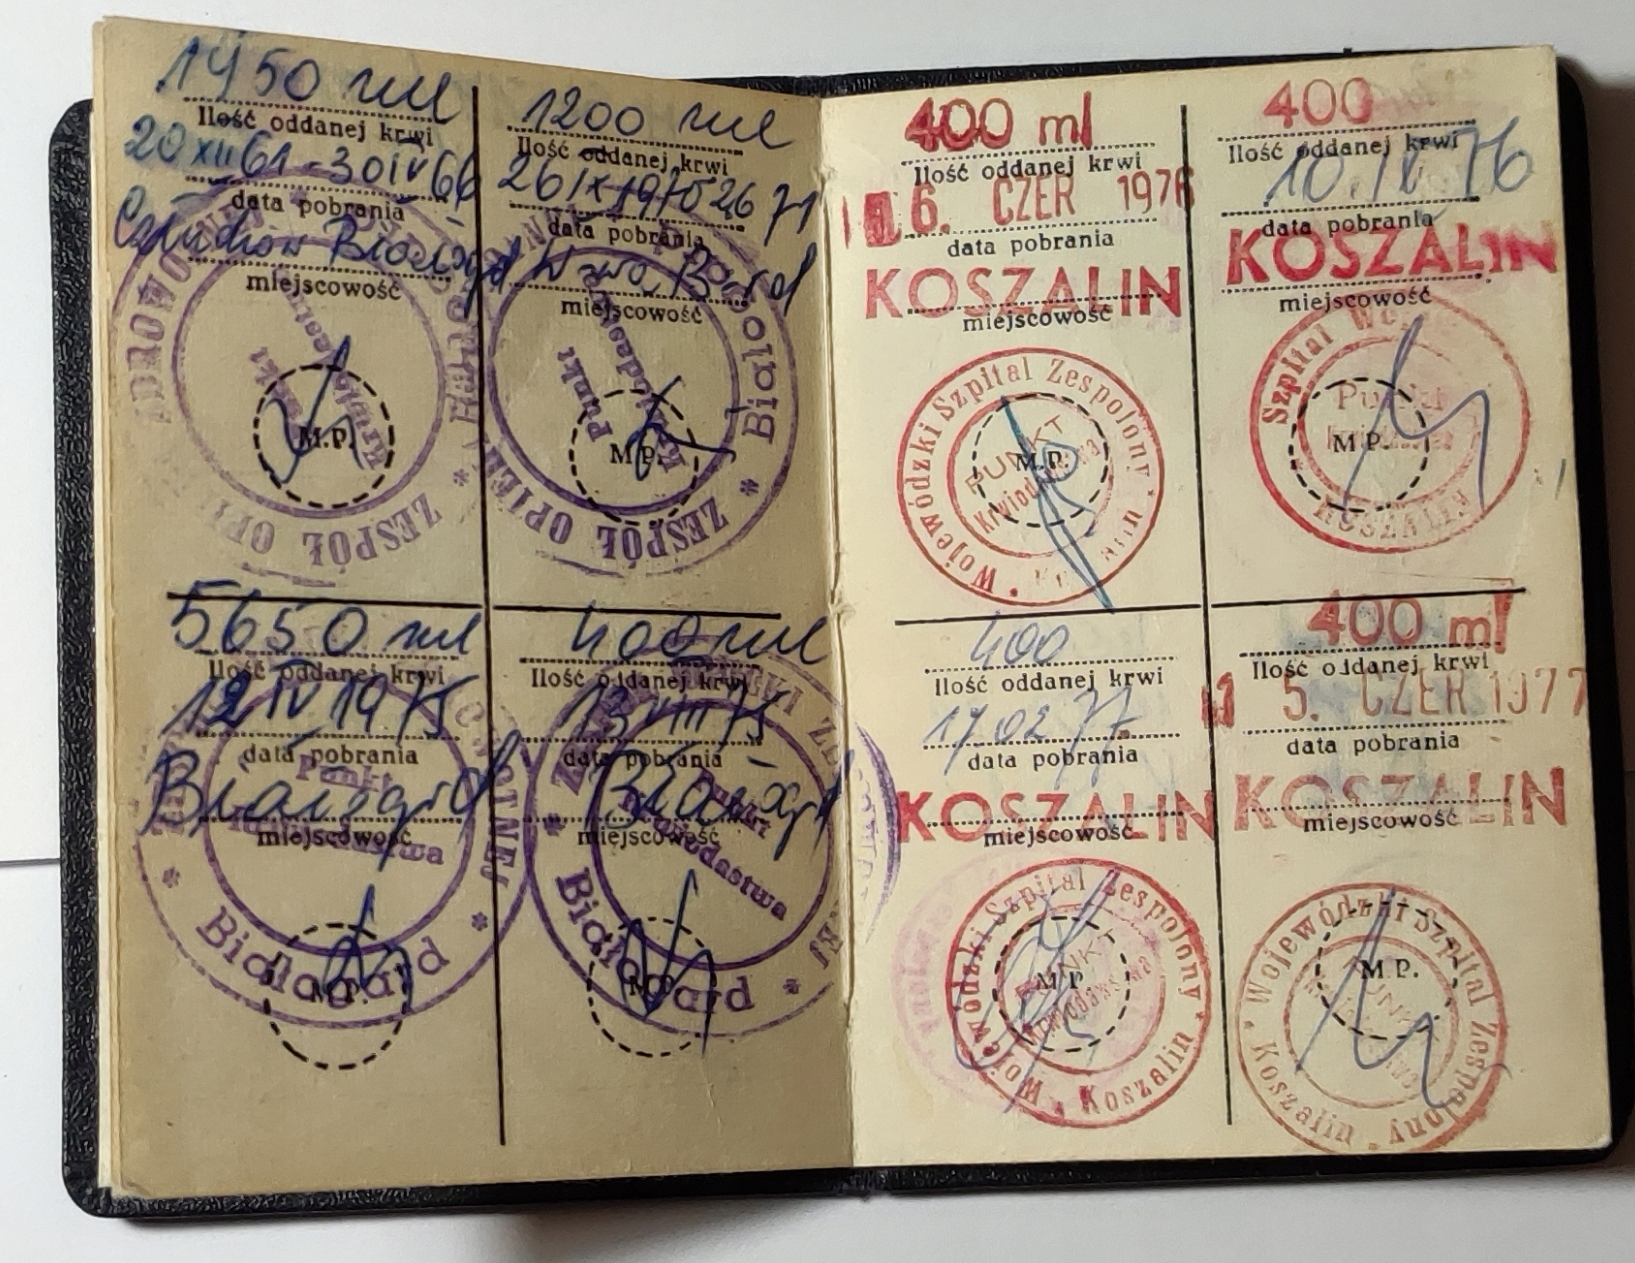 1450 ml
Ilość oddanej krwi
20 XII 61 - 30 IV 66
data pobrania
Człuchów Białogard
miejscowość
M.P.
ZESPÓŁ
1200 ml
Ilość oddanej krwi
26 IX 1970 26 71
data pobrania
miejscowość
Punkt
M.P.
ZESPÓŁ
5650 ml
Ilość oddanej krwi
12 IV 1975
data pobrania
Białogard
miejscowość
Punkt
Białogard
M.P.
400 ml
Ilość oddanej krwi
13 VIII 75
data pobrania
Białogard
miejscowość
Punkt
Krwiodastwa
Białogard
M.P.
400 ml
Ilość oddanej krwi
16. CZER 1976
data pobrania
KOSZALIN
miejscowość
Wojewódzki Szpital Zespolony
PUNKT
Krwiodawstwa
M.P.
400
Ilość oddanej krwi
10. IX 76
data pobrania
KOSZALIN
miejscowość
Szpital
Punkt
M.P.
KOSZALIN
400
Ilość oddanej krwi
17 02 77
data pobrania
KOSZALIN
miejscowość
Wojewódzki Szpital Zespolony
PUNKT
Krwiodawstwa
M.P.
Koszalin
400 ml
Ilość oddanej krwi
15. CZER 1977
data pobrania
KOSZALIN
miejscowość
Wojewódzki Szpital Zespolony
PUNKT
M.P.
Koszalin